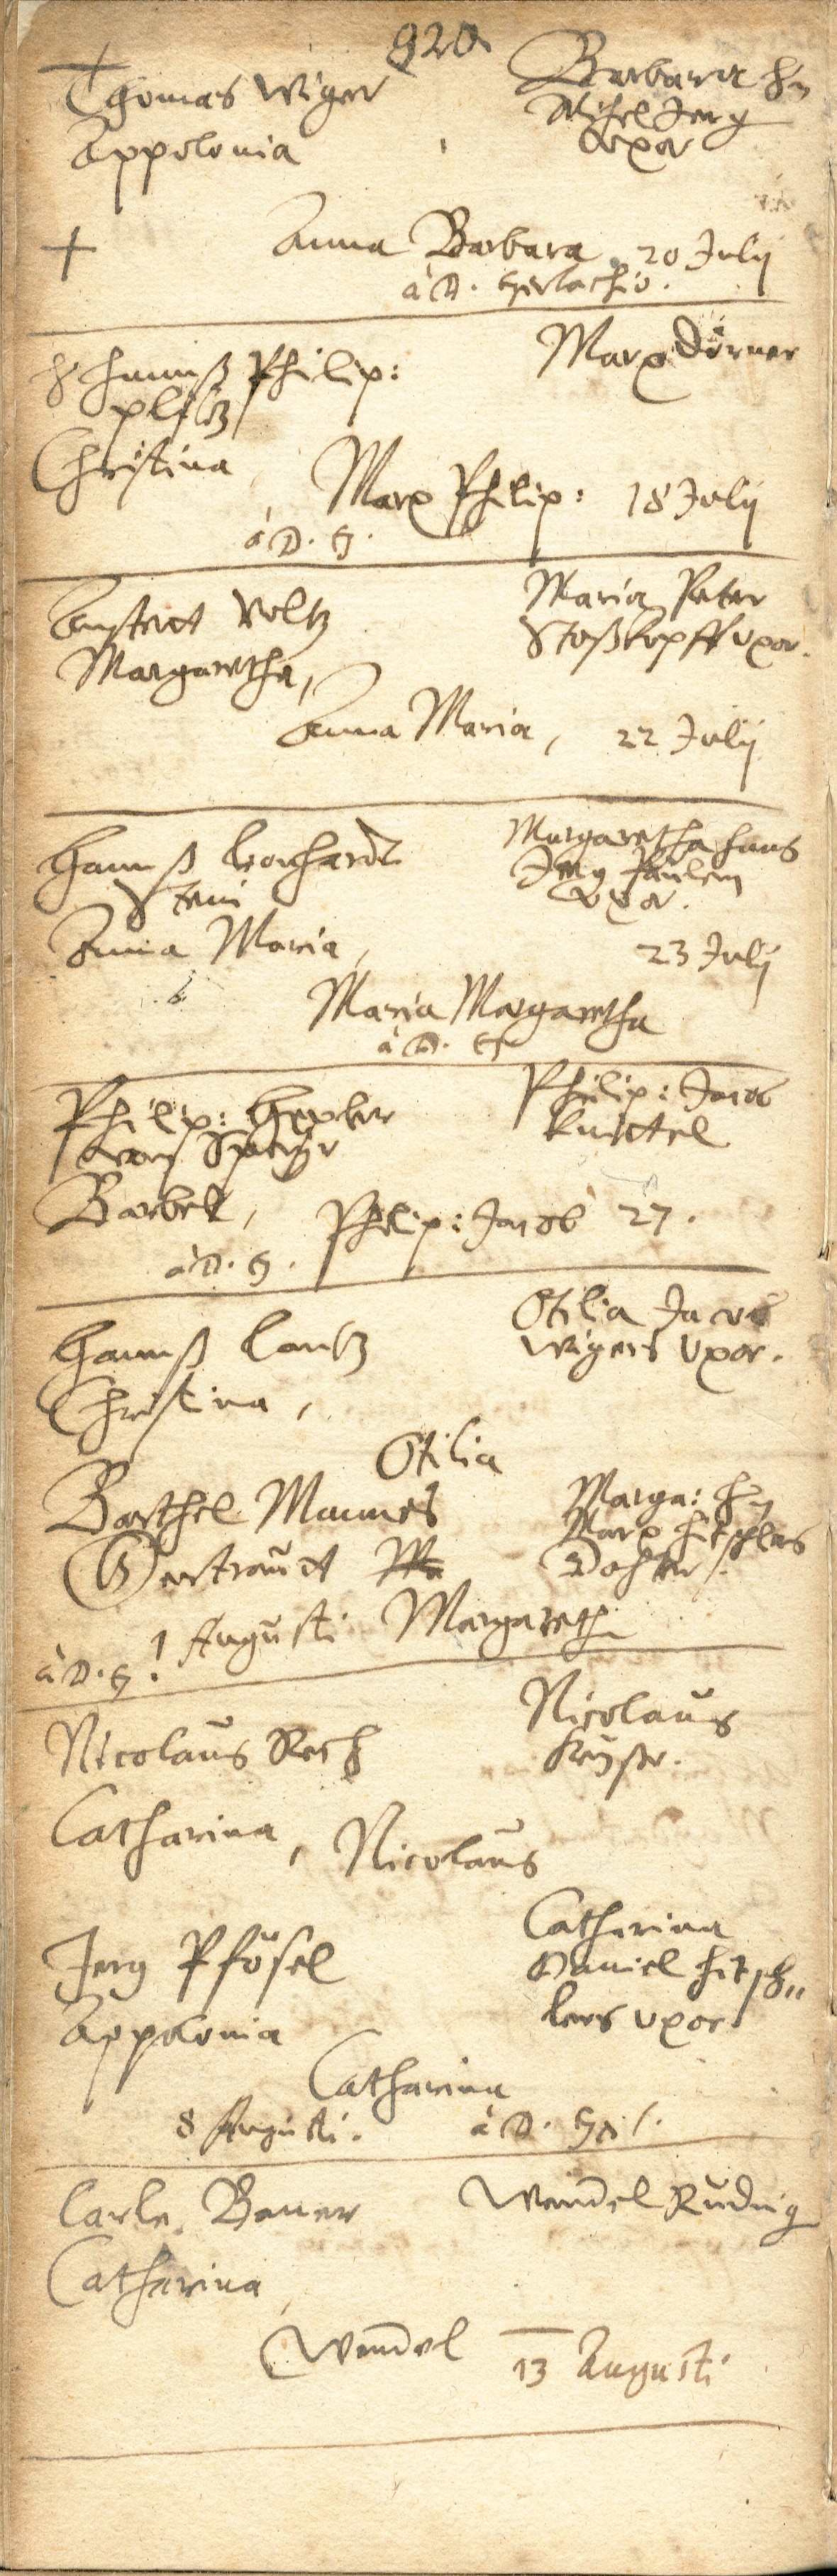 920.
+
Thomas Wiger
Appolonia
Barbara H.
Michel Jerg
Uxor
+
Anna Barbara 20 Julij
à D. Gerlachio.
Hannß Philip:
Christina,
Marx Dörner
Marx Philip: 18 Julij
à D. G.
Voltz
Margaretha,
Maria Peter
Stoßkopff uxor.
Anna Maria, 22 Julij
Hannß Leonhardt
Anna Maria,
Margaretha Hans
Jerg Paulem
uxor.
23 Julij
Maria Margaretha
à D. G
Philip:
von Speyer
Barbel,
Philip: Jacob
Knittel
Philip: Jacob 27.
à D. G.
Hannß Lantz
Christina,
Otilia Jacob
Wigers Uxor.
Otilia
Barthel Mannes
Gertraudt
Marga: H.
Marx Hitschlers
Dochter.
1 Augusti Margareth
à D. G
Nicolaus Rech
Catharina,
Nicolaus
Keyser.
Nicolaus
Jerg Pfösel
Appolonia
Catharina
Daniel Hitsch„
lers uxor
Catharina
8 Augusti. à D. Ge:
Carle Bauer
Catharina,
Wendel Rudnig
Wendel 13 Augusti